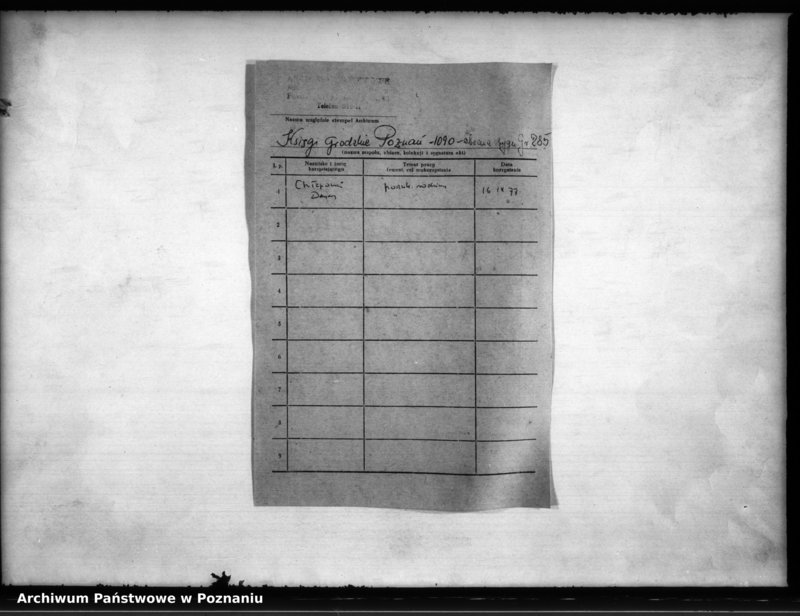 Telefon
Nazwa względnie stempel Archiwum
Księgi Grodzkie Poznań - 1090 - Gr 285
(nazwa zespołu, zbioru, kolekcji i sygnatura akt)
L.p. Nazwisko i imię korzystającego Temat pracy Data korzystania
1 poszuk. rodzinne 16 IX 77
2
3
4
5
6
7
8
9
Archiwum Państwowe w Poznaniu